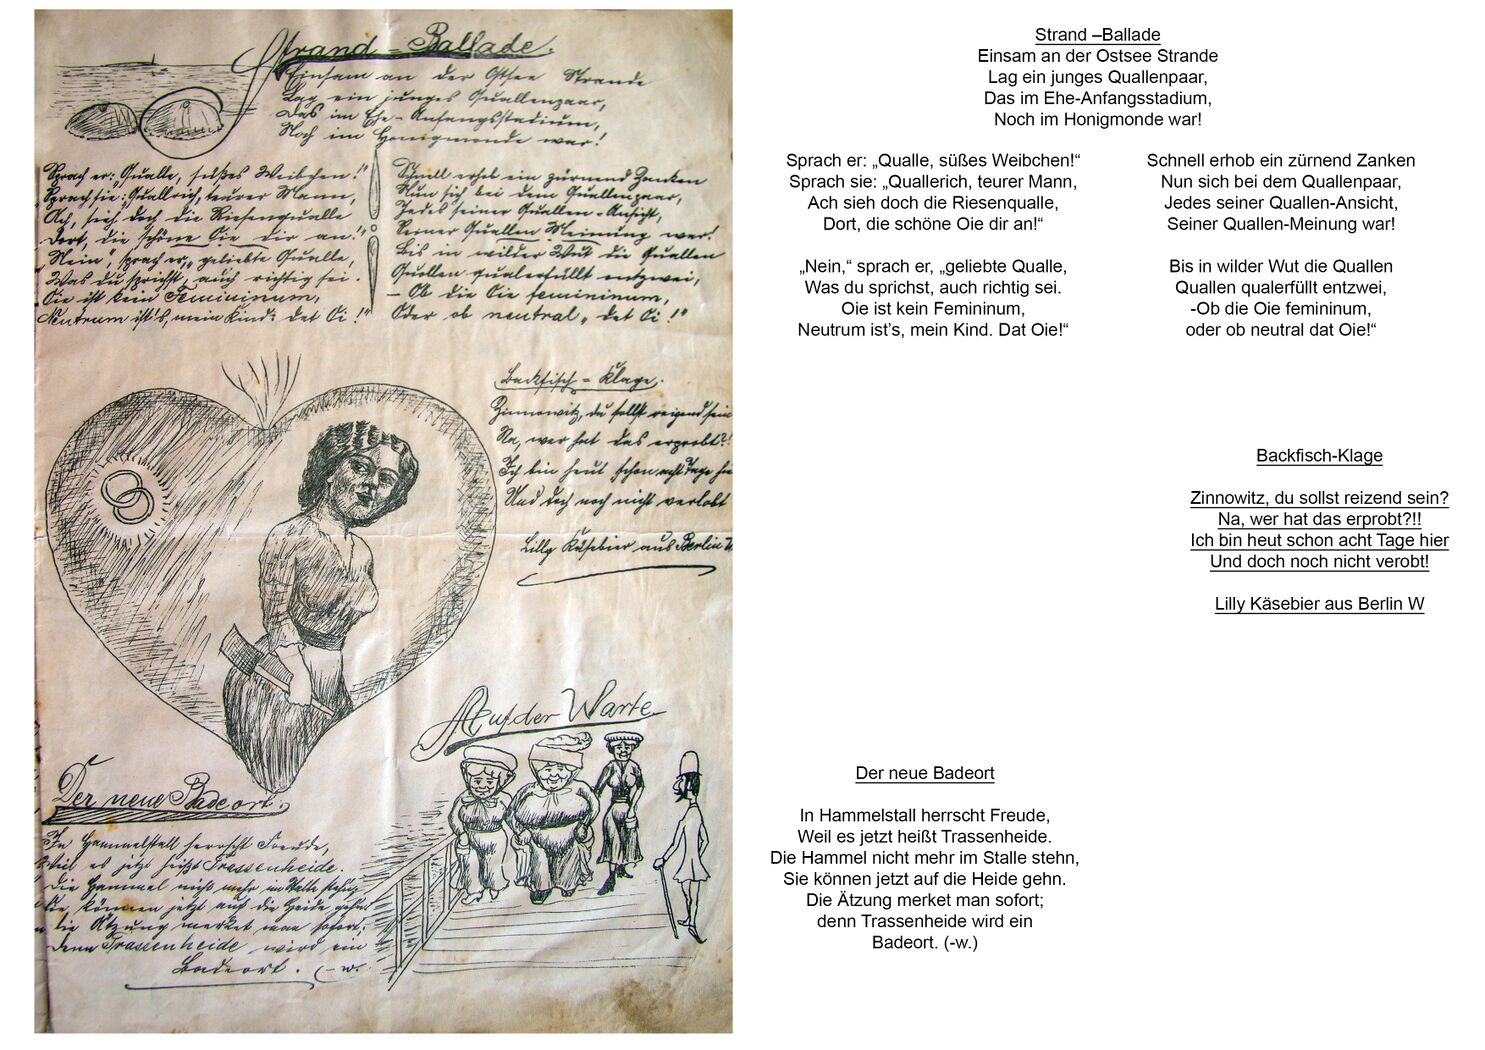 Strand = Ballade.
Einsam an der Ostsee Strande
Lag ein junges Quallenpaar,
Das im Ehe-Anfangsstadium,
Noch im Honigmonde war!
Sprach er: „Qualle, süßes Weibchen!"
Sprach sie: „Quallrich, teurer Mann,
Ach, sieh doch die Riesenqualle
Dort, die schöne Oie dir an!"
„Nein", sprach er, „geliebte Qualle,
Was du sprichst, auch richtig sei.
Oie ist kein Femininum,
Neutrum ist's, mein Kind: det Oi!"
Schnell erhob ein zürnend Zanken
Nun sich bei dem Quallenpaar,
Jedes seiner Quallen-Ansicht,
Seiner Quallen Meinung war!
Bis in wilder Wut die Quallen
Quollen qualerfüllt entzwei,
– Ob die Oie femininum,
Oder ob neutral „det Oi!"
Backfisch = Klage.
Zinnowitz, du sollst reizend sein
Na, wer hat das erprobt?!
Ich bin heut schon acht Tage hie
Und doch noch nicht verlobt
Lilly Käsebier aus Berlin W
Auf der Warte.
Der neue Badeort.
In Hammelstall herrscht Freude,
Weil es jetzt heißt Trassenheide.
Die Hammel nicht mehr im Stalle stehn,
Sie können jetzt auf die Heide gehn.
Die Ätzung merket man sofort;
denn Trassenheide wird ein
Badeort. (-w.
Strand –Ballade
Einsam an der Ostsee Strande
Lag ein junges Quallenpaar,
Das im Ehe-Anfangsstadium,
Noch im Honigmonde war!
Sprach er: „Qualle, süßes Weibchen!“
Sprach sie: „Quallerich, teurer Mann,
Ach sieh doch die Riesenqualle,
Dort, die schöne Oie dir an!“
„Nein,“ sprach er, „geliebte Qualle,
Was du sprichst, auch richtig sei.
Oie ist kein Femininum,
Neutrum ist’s, mein Kind. Dat Oie!“
Schnell erhob ein zürnend Zanken
Nun sich bei dem Quallenpaar,
Jedes seiner Quallen-Ansicht,
Seiner Quallen-Meinung war!
Bis in wilder Wut die Quallen
Quallen qualerfüllt entzwei,
-Ob die Oie femininum,
oder ob neutral dat Oie!“
Backfisch-Klage
Zinnowitz, du sollst reizend sein?
Na, wer hat das erprobt?!!
Ich bin heut schon acht Tage hier
Und doch noch nicht verobt!
Lilly Käsebier aus Berlin W
Der neue Badeort
In Hammelstall herrscht Freude,
Weil es jetzt heißt Trassenheide.
Die Hammel nicht mehr im Stalle stehn,
Sie können jetzt auf die Heide gehn.
Die Ätzung merket man sofort;
denn Trassenheide wird ein
Badeort. (-w.)